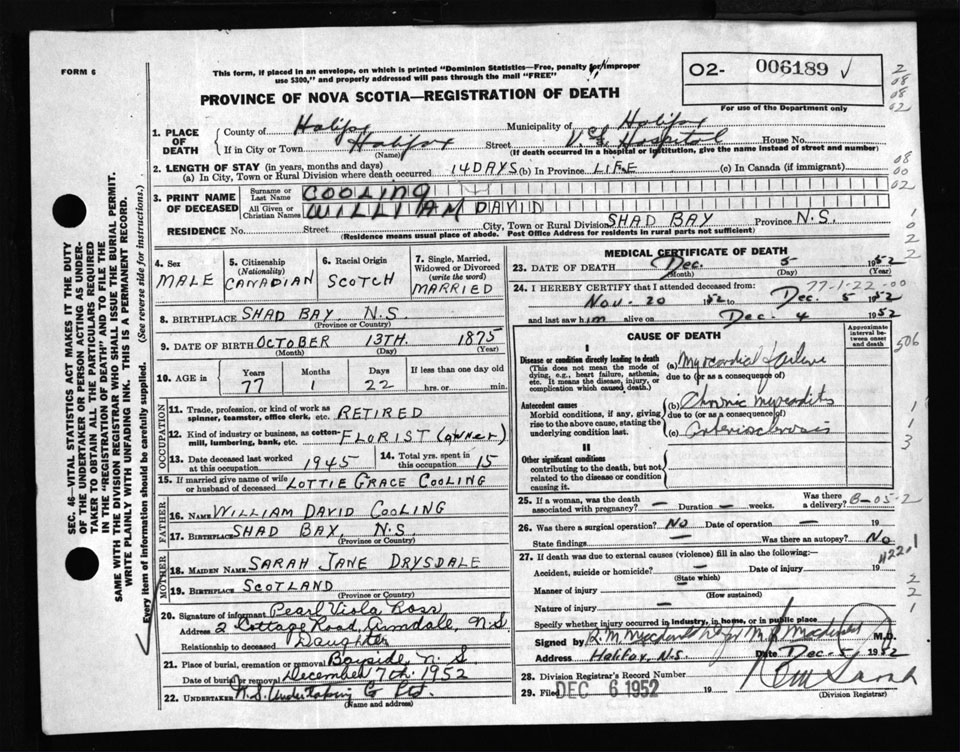 FORM 6
This form, if placed in an envelope, on which is printed "Dominion Statistics—Free, penalty for improper
use $300," and properly addressed will pass through the mail "FREE"
O2- 006189
For use of the Department only
PROVINCE OF NOVA SCOTIA—REGISTRATION OF DEATH
2
08
08
02
1. PLACE OF DEATH
County of Halifax Municipality of Halifax
If in City or Town Halifax (Name) Street V.G. Hospital House No.
(If death occurred in a hospital or institution, give the name instead of street and number)
2. LENGTH OF STAY (in years, months and days)
(a) In City, Town or Rural Division where death occurred 14 DAYS (b) In Province LIFE (c) In Canada (if immigrant)
08
00
02
3. PRINT NAME OF DECEASED
Surname or Last Name COOLING
All Given or Christian Names WILLIAM DAVID
RESIDENCE No. Street City, Town or Rural Division SHAD BAY Province N.S.
(Residence means usual place of abode. Post Office Address for residents in rural parts not sufficient)
1
0
2
2
4. Sex MALE
5. Citizenship (Nationality) CANADIAN
6. Racial Origin SCOTCH
7. Single, Married, Widowed or Divorced (write the word) MARRIED
8. BIRTHPLACE SHAD BAY N.S.
(Province or Country)
9. DATE OF BIRTH OCTOBER 13TH. 1875
(Month) (Day) (Year)
10. AGE in Years 77 Months 1 Days 22 If less than one day old hrs. or min.
OCCUPATION
11. Trade, profession, or kind of work as spinner, teamster, office clerk, etc. RETIRED
12. Kind of industry or business, as cotton-mill, lumbering, bank, etc. FLORIST (OWNER)
13. Date deceased last worked at this occupation 1945
14. Total yrs. spent in this occupation 15
15. If married give name of wife or husband of deceased LOTTIE GRACE COOLING
FATHER
16. NAME WILLIAM DAVID COOLING
17. BIRTHPLACE SHAD BAY N.S.
(Province or Country)
MOTHER
18. MAIDEN NAME SARAH JANE DRYSDALE
19. BIRTHPLACE SCOTLAND
(Province or Country)
20. Signature of informant Pearl Viola Ross
Address 2 Cottage Road, Armdale, N.S.
Relationship to deceased Daughter
21. Place of burial, cremation or removal Bayside, N.S.
Date of burial or removal December 7th. 1952
22. UNDERTAKER N.S. Undertaking Co Ltd.
(Name and address)
MEDICAL CERTIFICATE OF DEATH
23. DATE OF DEATH Dec. 5 1952
(Month) (Day) (Year)
77-1-22-00
24. I HEREBY CERTIFY that I attended deceased from:
Nov. 20 1952 to Dec. 5 1952
and last saw him alive on Dec. 4 1952
CAUSE OF DEATH
Approximate interval between onset and death
506
I
Disease or condition directly leading to death
(This does not mean the mode of dying, e.g., heart failure, asthenia, etc. It means the disease, injury, or complication which caused death.)
(a) Myocardial Failure
due to (or as a consequence of)
Antecedent causes
Morbid conditions, if any, giving rise to the above cause, stating the underlying condition last.
(b) Chronic Myocarditis
due to (or as a consequence of)
(c) Arteriosclerosis
1
1
3
II
Other significant conditions
contributing to the death, but not related to the disease or condition causing it.
25. If a woman, was the death associated with pregnancy? — Duration — weeks. Was there a delivery?
8-05-2
26. Was there a surgical operation? No Date of operation — 19
State findings — Was there an autopsy? No
27. If death was due to external causes (violence) fill in also the following:—
4221
Accident, suicide or homicide? — Date of injury 19
(State which)
Manner of injury —
(How sustained)
Nature of injury —
2
2
1
Specify whether injury occurred in industry, in home, or in public place
Signed by M.D.
Address Halifax, N.S. Date Dec. 5, 1952
28. Division Registrar's Record Number
29. Filed DEC 6 1952 19
(Division Registrar)
SEC. 46—VITAL STATISTICS ACT MAKES IT THE DUTY
OF THE UNDERTAKER OR PERSON ACTING AS UNDER-
TAKER TO OBTAIN ALL THE PARTICULARS REQUIRED
IN THE "REGISTRATION OF DEATH" AND TO FILE THE
SAME WITH THE DIVISION REGISTRAR WHO SHALL ISSUE THE BURIAL PERMIT.
WRITE PLAINLY WITH UNFADING INK. THIS IS A PERMANENT RECORD.
Every item of Information should be carefully supplied. (See reverse side for instructions.)